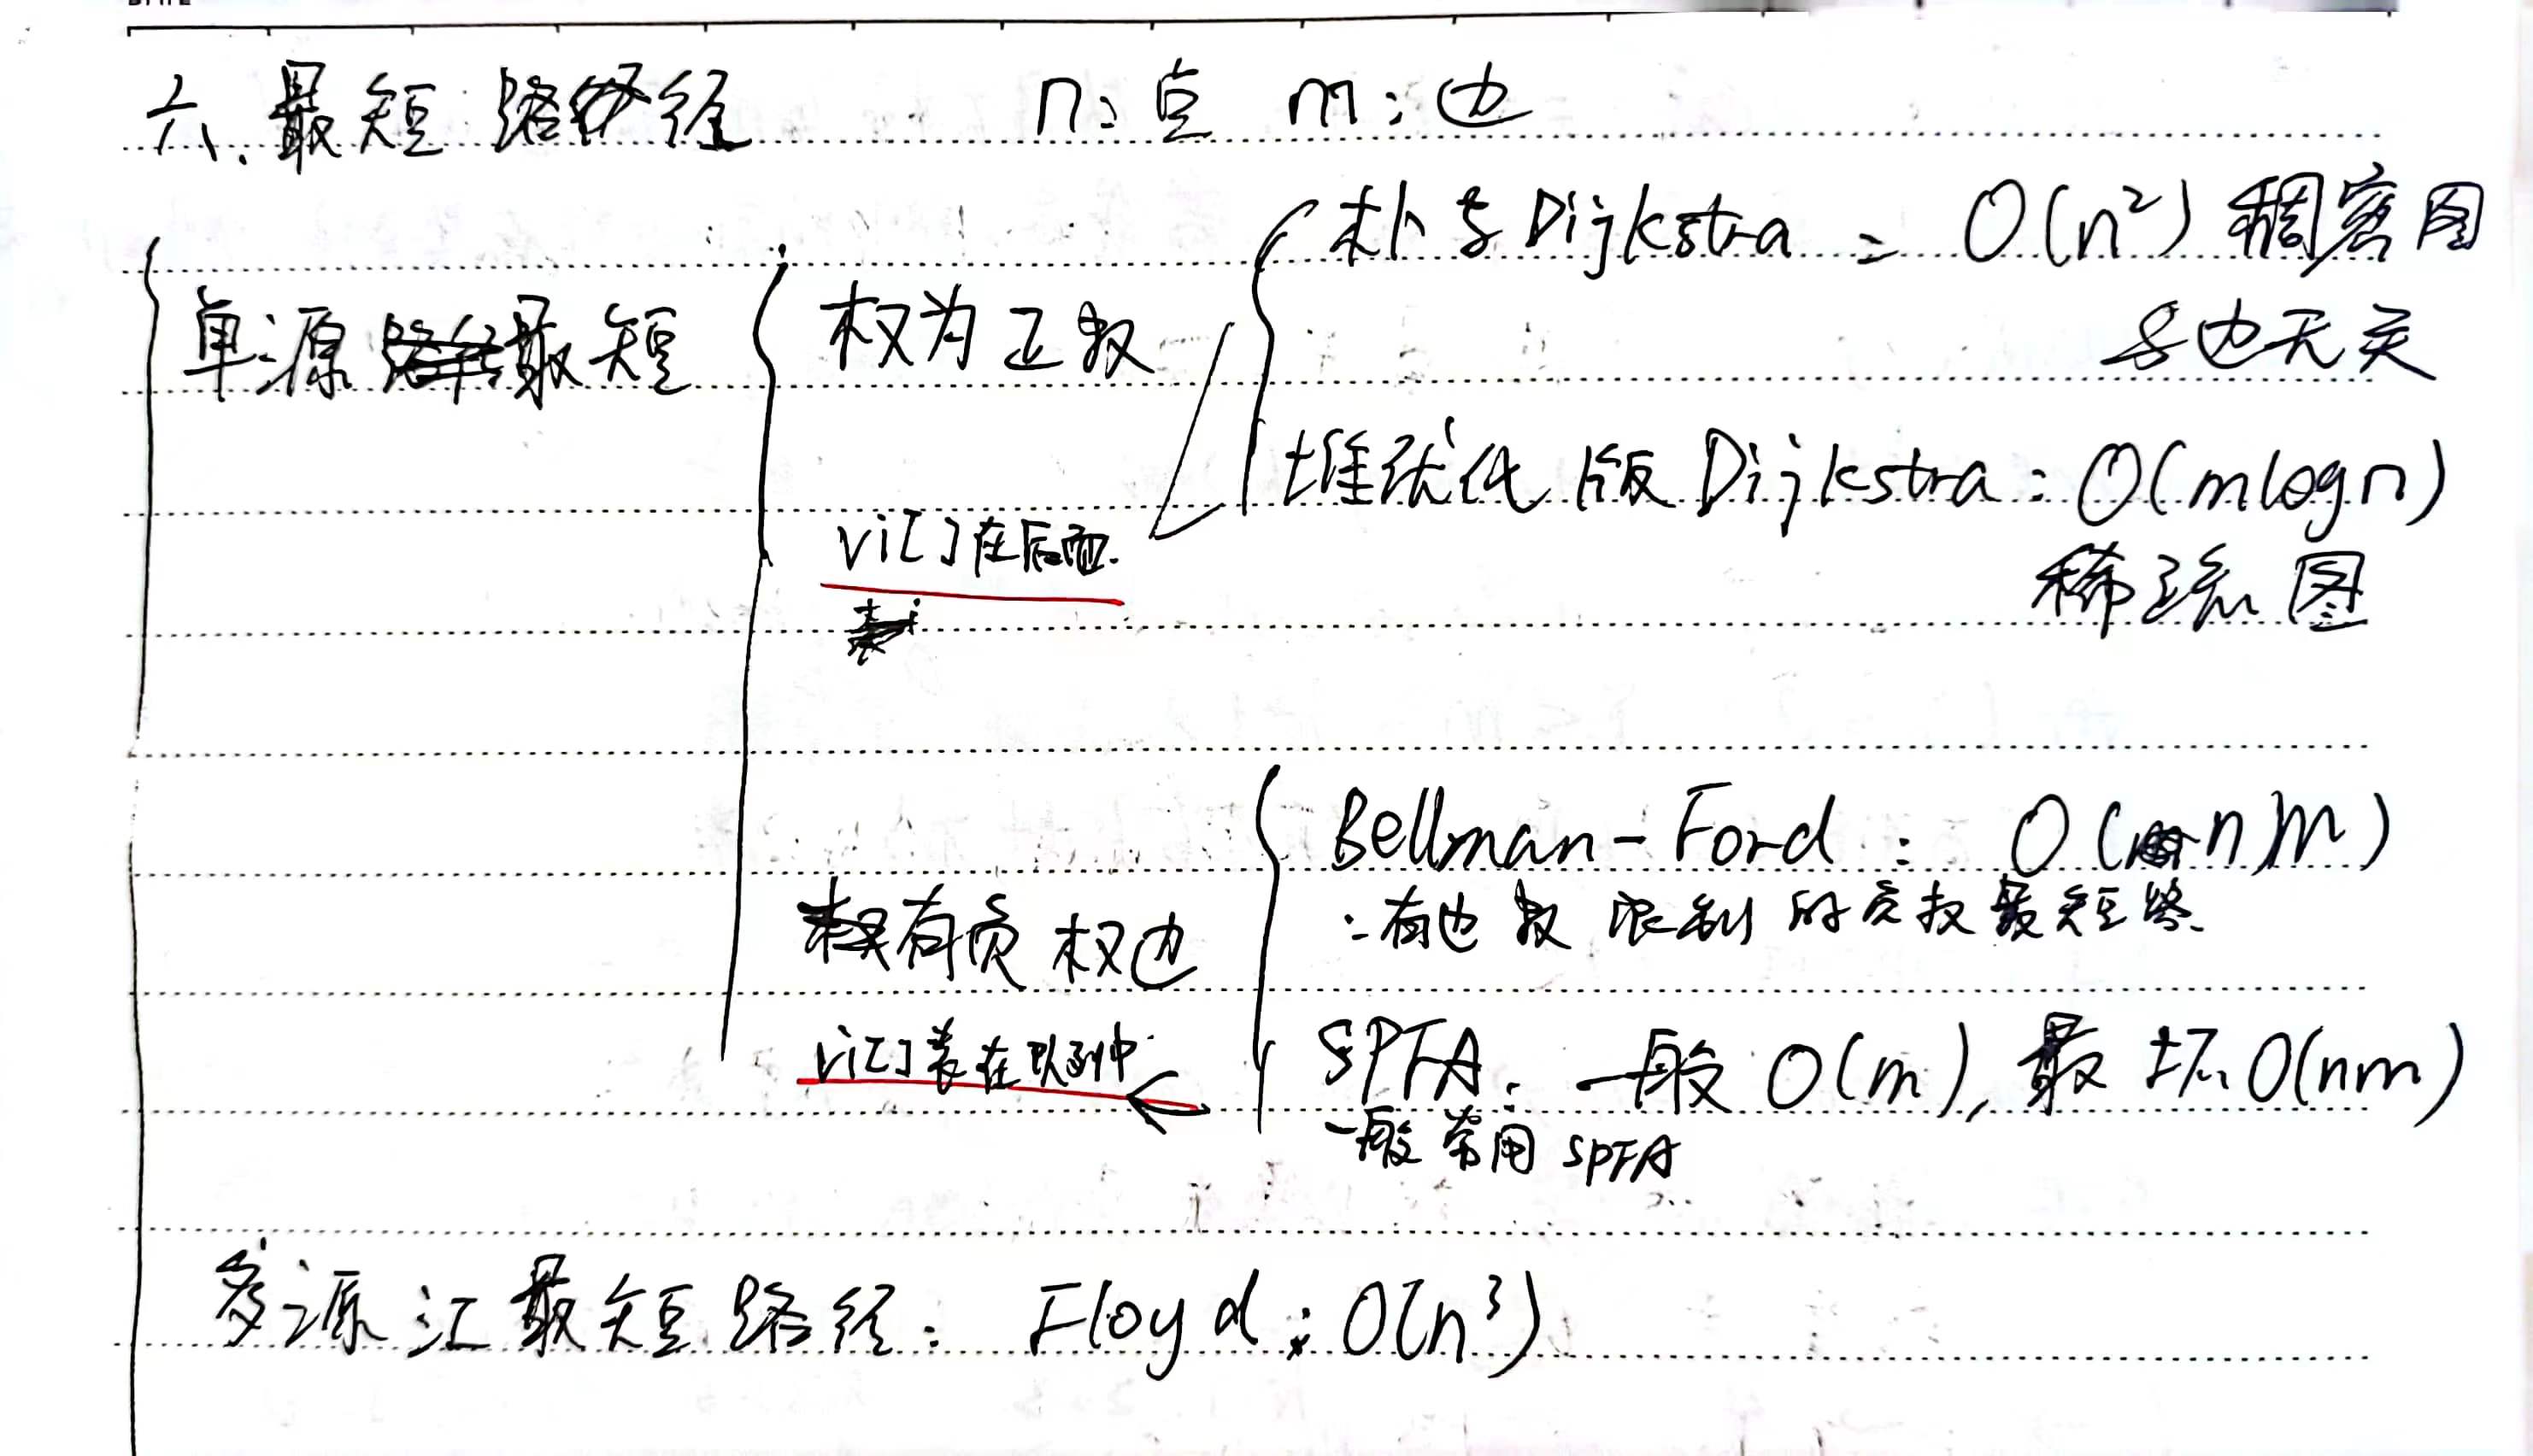 六、最短路径 n:点 m:边
朴素Dijkstra : O(n²) 稠密图
与边无关
单源最短
权为正数
堆优化版Dijkstra : O(mlogn)
稀疏图
vi[]在后面.
Bellman-Ford : O(nm)
:有边数限制的负权最短路.
有负权边
SPFA. 一般O(m), 最坏O(nm)
vi[]表在队列中
一般常用SPFA
多源汇最短路径: Floyd : O(n³)